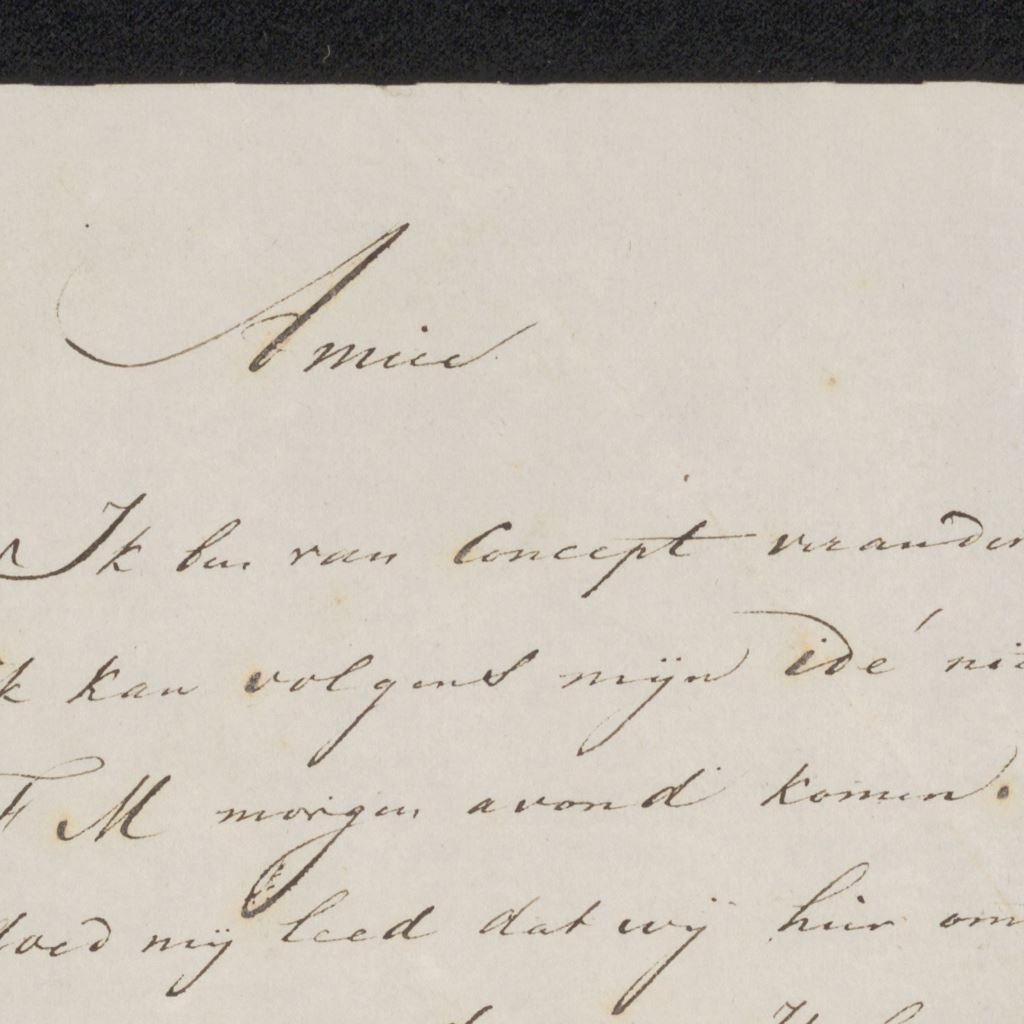 Amice
Ik ben van Concept verander
k kan volgens mijn idé ni
F M morgen avond komen.
doed mij leed dat wij hier om